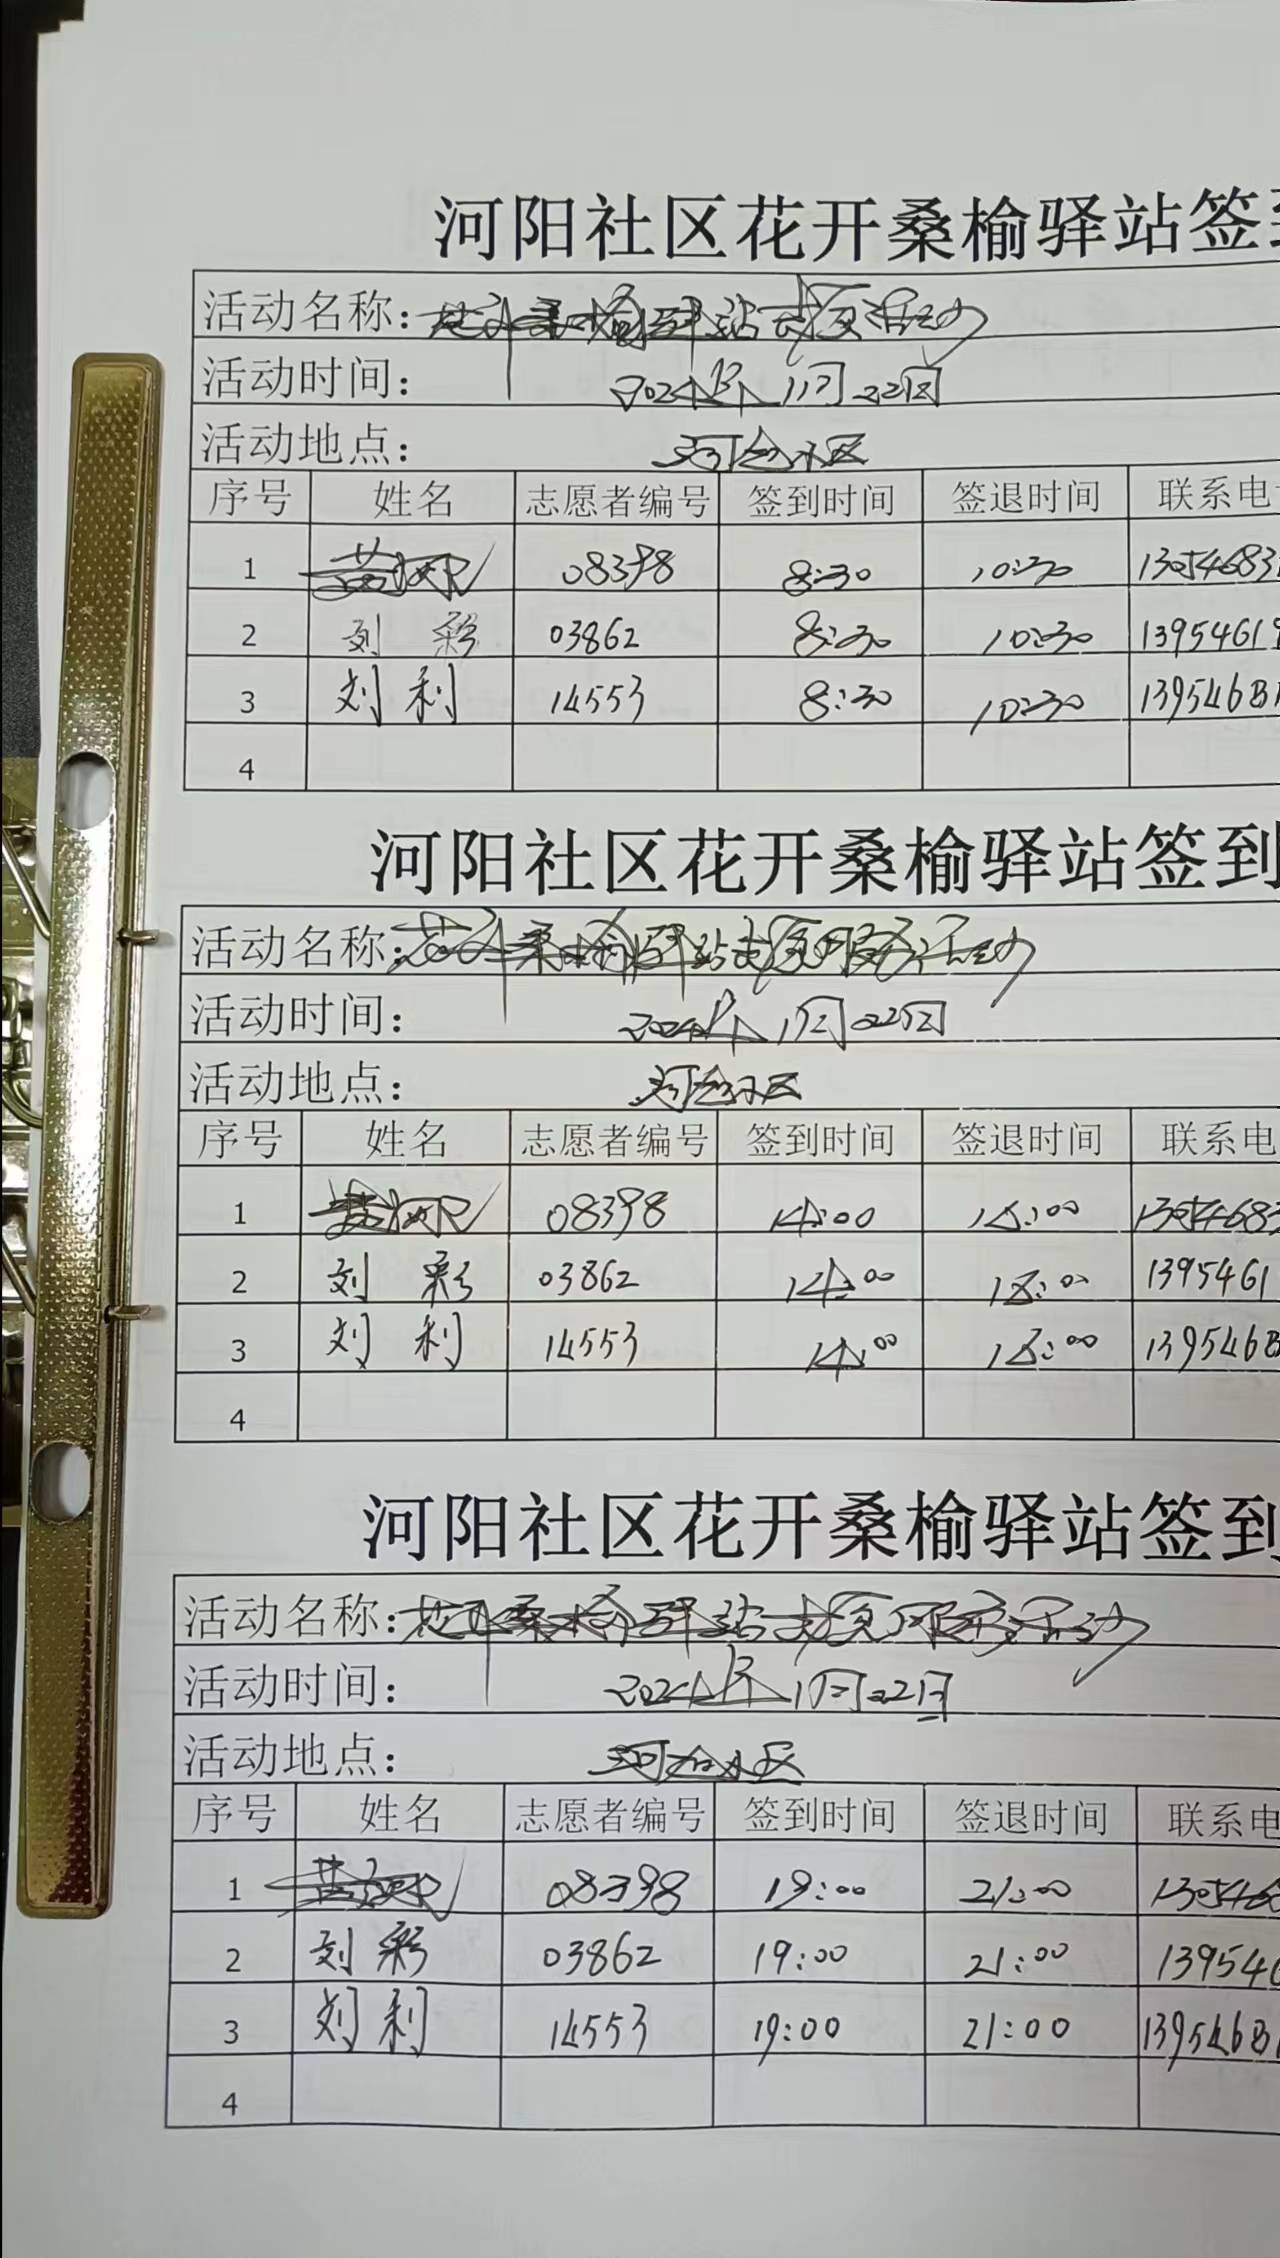 河阳社区花开桑榆驿站签到
活动名称：花开桑榆驿站志愿活动
活动时间： 2024年11月22日
活动地点： 河 小区
序号 姓名 志愿者编号 签到时间 签退时间 联系电
1 08398 8:30 10:30 13054683
2 刘彩 03862 8:30 10:30 1395461
3 刘利 14553 8:30 10:30 13954681
4
河阳社区花开桑榆驿站签到
活动名称：花开桑榆驿站志愿服务活动
活动时间： 2024年11月22日
活动地点： 河 小区
序号 姓名 志愿者编号 签到时间 签退时间 联系电
1 08398 14:00 18:00 1305468
2 刘彩 03862 14:00 18:00 1395461
3 刘利 14553 14:00 18:00 1395468
4
河阳社区花开桑榆驿站签到
活动名称：花开桑榆驿站志愿服务活动
活动时间： 2024年11月22日
活动地点： 河 小区
序号 姓名 志愿者编号 签到时间 签退时间 联系电
1 08398 19:00 21:00 130546
2 刘彩 03862 19:00 21:00 139546
3 刘利 14553 19:00 21:00 1395468
4